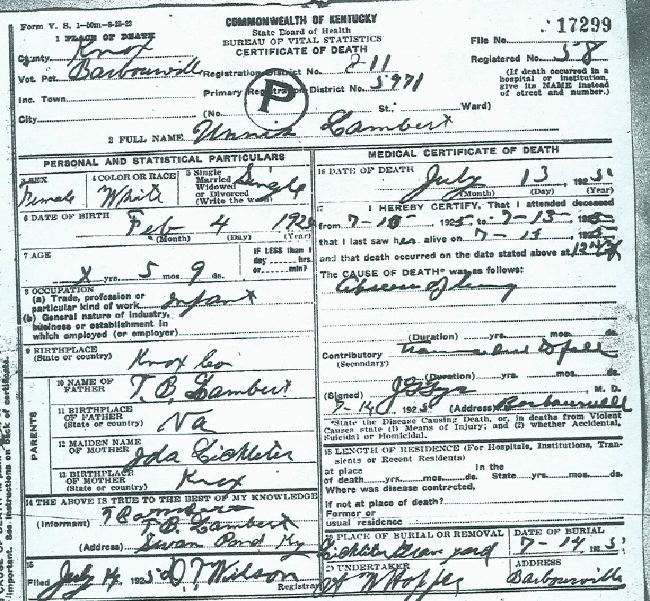 Form V. S. 1-50m-8-23-23
COMMONWEALTH OF KENTUCKY
State Board of Health
BUREAU OF VITAL STATISTICS
CERTIFICATE OF DEATH
File No. 17299
Registered No. 58
(If death occurred in a hospital or institution, give its NAME instead of street and number.)
1 PLACE OF DEATH
County Knox
Vot. Pct. Barbourville Registration District No. 211
Inc. Town Primary Registration District No. 5971
P
City (No. St. Ward)
2 FULL NAME Lambert
PERSONAL AND STATISTICAL PARTICULARS
3 SEX Female
4 COLOR OR RACE White
5 Single Married Widowed or Divorced (Write the word) Single
6 DATE OF BIRTH Feb 4 192
(Month) (Day) (Year)
7 AGE
x yrs. 5 mos 9 ds.
IF LESS than 1 day hrs. or min?
8 OCCUPATION
(a) Trade, profession or particular kind of work Infant
(b) General nature of industry, business or establishment in which employed (or employer)
9 BIRTHPLACE (State or country) Knox Co
PARENTS
10 NAME OF FATHER T. B. Lambert
11 BIRTHPLACE OF FATHER (State or country) Va
12 MAIDEN NAME OF MOTHER Ida
13 BIRTHPLACE OF MOTHER (State or country) Knox
14 THE ABOVE IS TRUE TO THE BEST OF MY KNOWLEDGE
(Informant) T. B. Lambert
(Address) Swan Pond Ky
15
Filed July 14 1925 Wilson
Registrar
MEDICAL CERTIFICATE OF DEATH
16 DATE OF DEATH July 13 1925
(Month) (Day) (Year)
17 I HEREBY CERTIFY, That I attended deceased
from 7-10 1925, to 7-13 1925
that I last saw her alive on 7-13 1925
and that death occurred on the date stated above at 12
The CAUSE OF DEATH* was as follows:
Abscess of lung
(Duration) yrs. mos. ds.
Contributory
(Secondary)
(Duration) yrs. mos. ds.
(Signed) M. D.
7-14 1925 (Address) Barbourville
*State the Disease Causing Death, or, in deaths from Violent Causes state (1) Means of Injury; and (2) whether Accidental, Suicidal or Homicidal.
18 LENGTH OF RESIDENCE (For Hospitals, Institutions, Transients or Recent Residents)
at place of death yrs. mos. ds. In the State yrs. mos. ds.
Where was disease contracted,
if not at place of death?
Former or usual residence
19 PLACE OF BURIAL OR REMOVAL
DATE OF BURIAL
Grave yard 7-14 1925
20 UNDERTAKER
ADDRESS
Barbourville